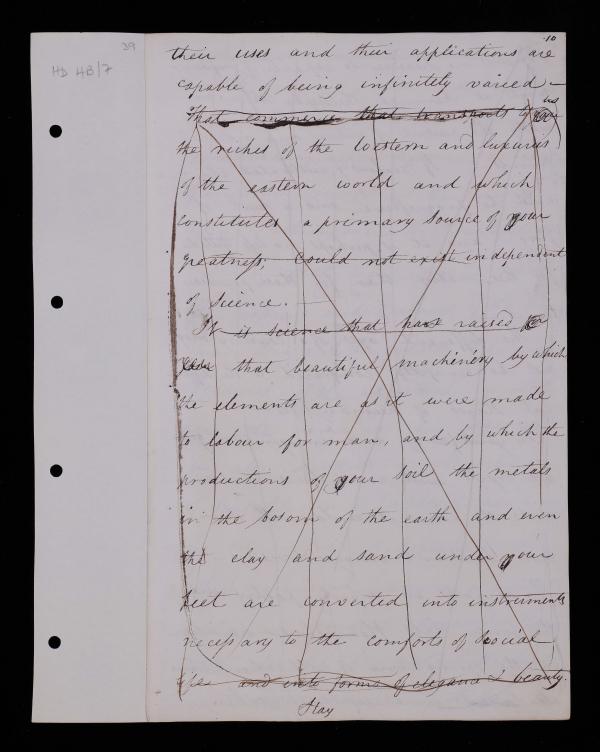 39
HD 4B/7
10
their uses and their applications are
capable of being infinitely varied –
That commerce that transports to
us
the riches of the Western and luxuries
of the eastern world and which
constitutes a primary source of your
greatness, could not exist independent
of science. –
It is science that has raised for
that beautiful machinery by which
the elements are as it were made
to labour for man, and by which the
productions of your soil the metals
in the bosom of the earth and even
the clay and sand under your
feet are converted into instruments
necessary to the comforts of social
life and into forms of elegance & beauty.
Stay